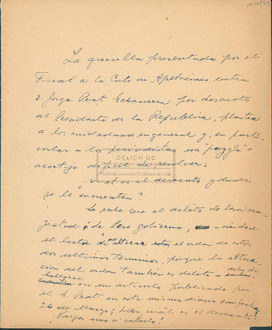 La querella presentada por el
Fiscal de la Corte de Apelaciones contra
d. Jorge Prat Echaurren por desacato
al Presidente de la República, plantea
a los ciudadanos en general y, en parti-
cular a los periodistas un "puzzle"
acertijo difícil de resolver:
¿Cuál es el desacato y donde
se le encuentra?
Se sabe que el delito de lesa ma-
jestad ó de los gobiernos,
el lector de alterar el orden de estos
dos últimos términos, porque la altera-
ción del orden también es delito
en un artículo publicado por
el Sr. Prat en este mismo diario con fecha
de Marzo; ¿cual es el desacato?